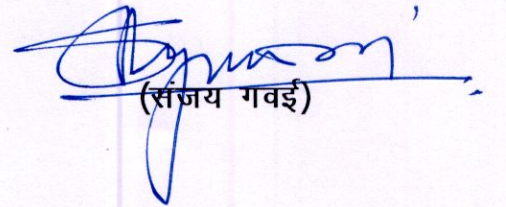 (संजय गवई)